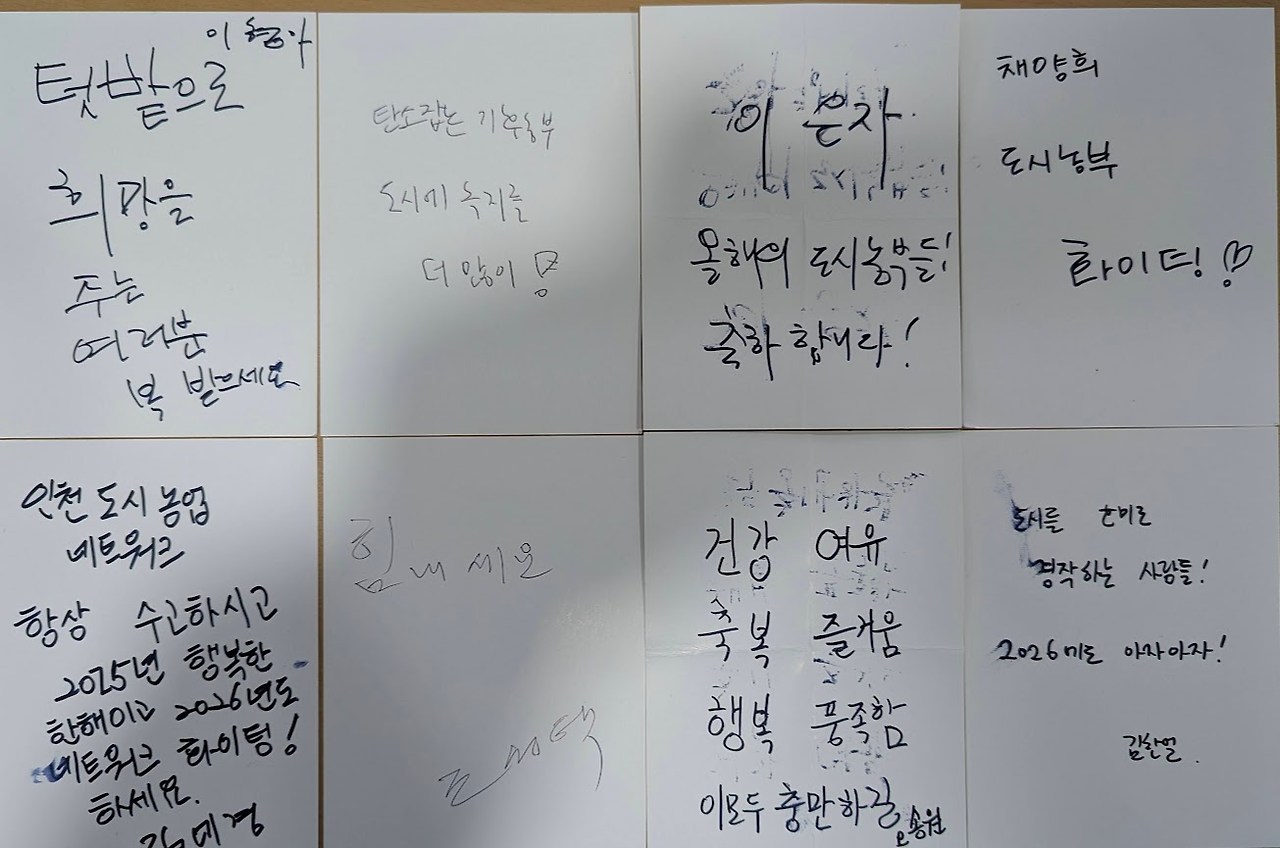 이형아
텃밭으로
희망을
주는
여러분
복 받으세요
탄소잡는 기후농부
도시에 녹지를
더 많이
이은자
올해의 도시농부들!
축하 합니다!
채양희
도시농부
화이팅!
인천 도시농업
네트워크
항상 수고하시고
2025년 행복한
한해이고 2026년도
네트워크 화이팅!
하세요.
힘내세요
건강 여유
축복 즐거움
행복 풍족함
이모두 충만하길
도시를
경작하는 사람들!
2026년도 아자아자!
김한얼.